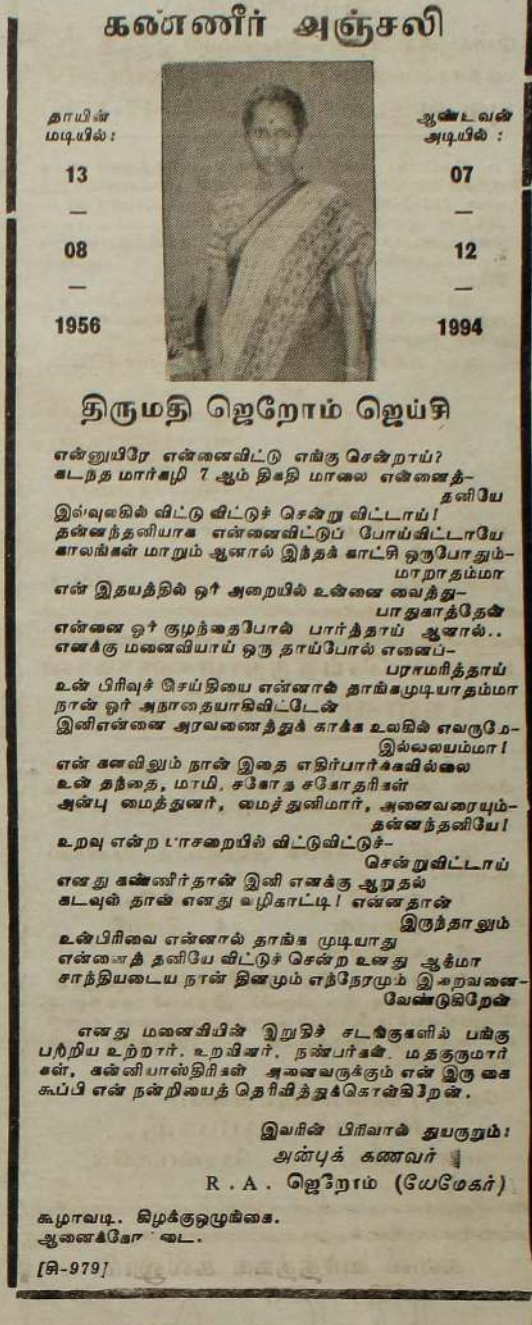 கண்ணீர் அஞ்சலி
தாயின்
மடியில் :
13
—
08
—
1956
ஆண்டவன்
அடியில் :
07
—
12
—
1994
திருமதி ஜெறோம் ஜெய்சி
என்னுயிரே என்னைவிட்டு எங்கு சென்றாய்?
கடந்த மார்கழி 7 ஆம் திகதி மாலை என்னைத்-
தனியே
இவ்வுலகில் விட்டு விட்டுச் சென்று விட்டாய்!
தன்னந்தனியாக என்னைவிட்டுப் போய்விட்டாயே
காலங்கள் மாறும் ஆனால் இந்தக் காட்சி ஒருபோதும்-
மாறாதம்மா
என் இதயத்தில் ஓர் அறையில் உன்னை வைத்து-
பாதுகாத்தேன்
என்னை ஓர் குழந்தைபோல் பார்த்தாய் ஆனால்..
எனக்கு மனைவியாய் ஒரு தாய்போல் எனைப்-
பராமரித்தாய்
உன் பிரிவுச் செய்தியை என்னால் தாங்கமுடியாதம்மா
நான் ஓர் அநாதையாகிவிட்டேன்
இனிஎன்னை அரவணைத்துக் காக்க உலகில் எவருமே-
இல்லலயம்மா!
என் கனவிலும் நான் இதை எதிர்பார்க்கவில்லை
உன் தந்தை, மாமி, சகோத சகோதரிகள்
அன்பு மைத்துனர், மைச்துனிமார், அனைவரையும்-
தன்னந்தனியே!
உறவு என்ற பாசறையில் விட்டுவிட்டுச்-
சென்றுவிட்டாய்
எனது கண்ணீர்தான் இனி எனக்கு ஆறுதல்
கடவுள் தான் எனது வழிகாட்டி! என்னதான்
இருந்தாலும்
உன்பிரிவை என்னால் தாங்க முடியாது
என்னைத் தனியே விட்டுச் சென்ற உனது ஆத்மா
சாந்தியடைய நான் தினமும் எந்நேரமும் இறைவனை-
வேண்டுகிறேன்
எனது மனைவியின் இறுதிச் சடங்குகளில் பங்கு
பற்றிய உற்றார். உறவினர். நண்பர்கள். மதகுருமார்
கள், கன்னியாஸ்திரிகள் அனைவருக்கும் என் இரு கை
கூப்பி என் நன்றியைத் தெரிவித்துக்கொள்கிறேன்.
இவரின் பிரிவால் துயருறும்:
அன்புக் கணவர்
R . A . ஜெறோம் (யேமேகர்)
கூழாவடி. கிழக்குஒழுங்கை.
[சி-979]